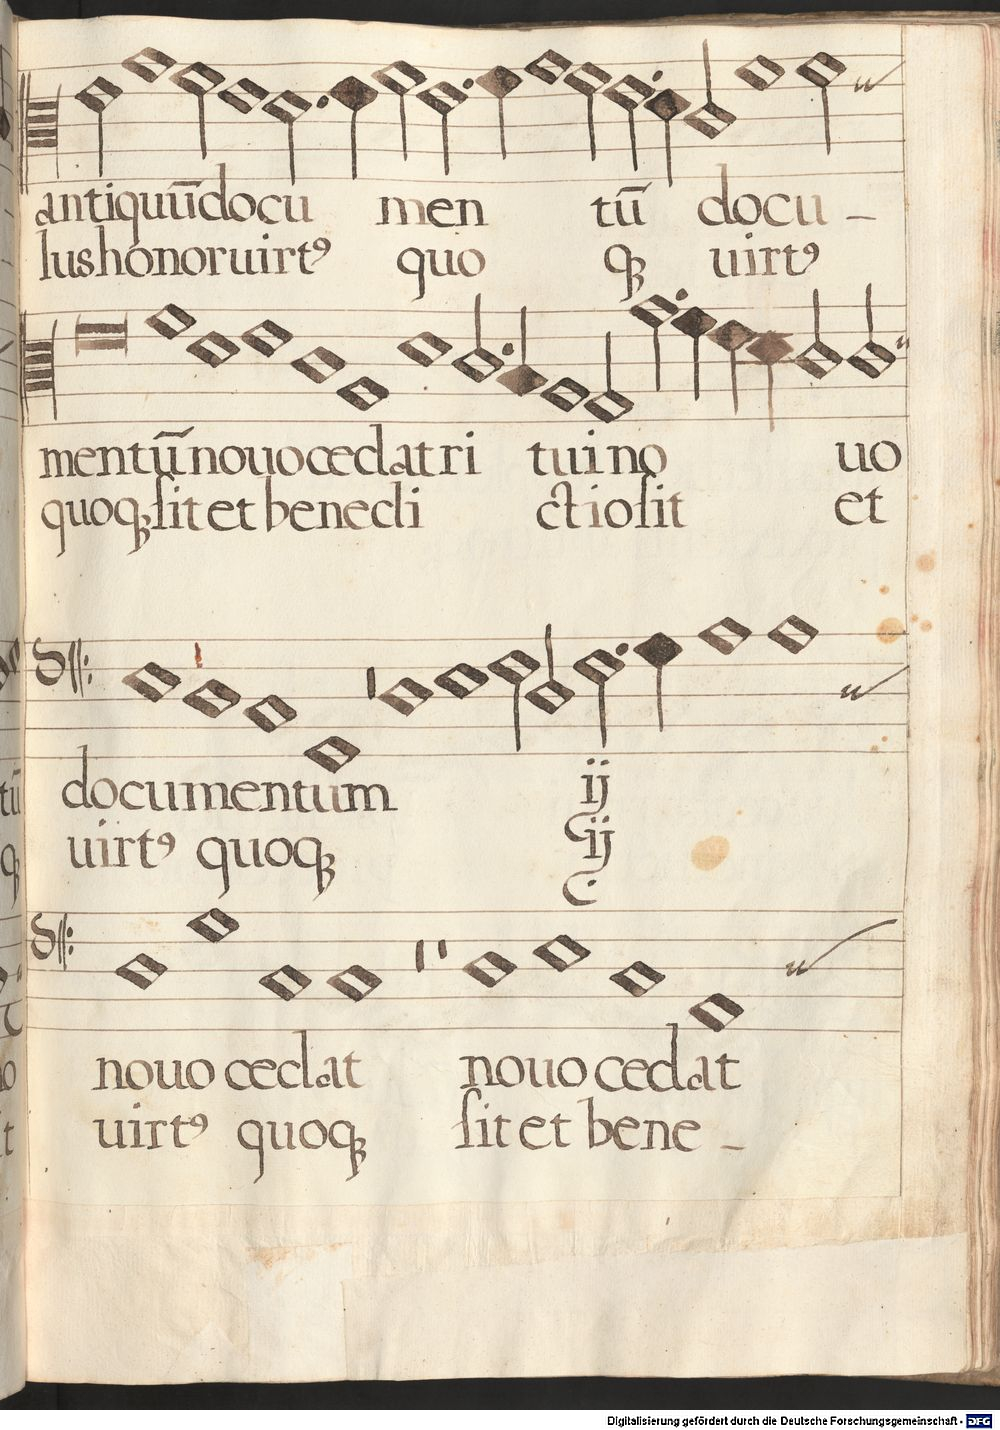 antiquūdocu men tū docu –
lushonoruirtꝰ quo qꝫ uirtꝰ
mentū nouo cedat ri tui no uo
quoqꝫ ſit et benedi ctio ſit et
documentum ij
uirtꝰ quoqꝫ ij
nouo cedat nouo cedat
uirtꝰ quoqꝫ ſit et bene –
Digitalisierung gefördert durch die Deutsche Forschungsgemeinschaft - DFG